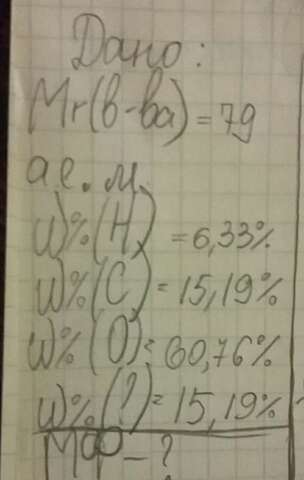 Дано:
Mr(в-ва)=79
а.е.м.
W%(H)=6,33%
W%(C)=15,19%
W%(O)=60,76%
W%(?)=15,19%
МФ-?